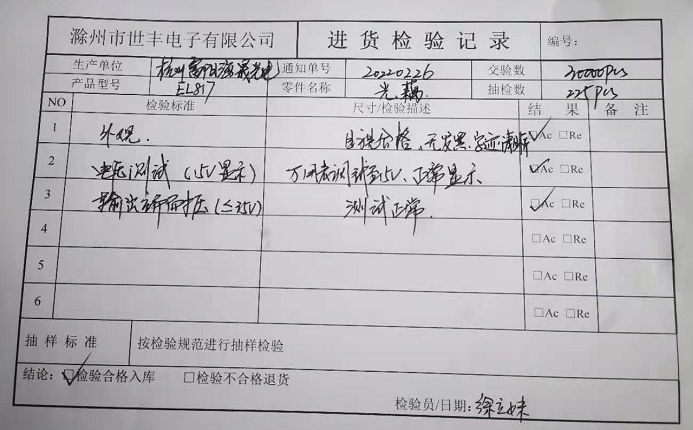 滁州市世丰电子有限公司 进货检验记录 编号:
生产单位 杭州富阳 通知单号 20220226 交验数 30000pcs
产品型号 EL817 零件名称 光耦 抽检数 225pcs
NO 检验标准 尺寸/检验描述 结果 备注
1 外观. 目视合格、无发黑、字迹清晰 ☑Ac □Re
2 电压测试(1.5V显示) 万用表调试至1.5V、正常显示 ☑Ac □Re
3 输出 耐压(≤35V) 测试正常. ☑Ac □Re
4 □Ac □Re
5 □Ac □Re
6 □Ac □Re
抽样标准 按检验规范进行抽样检验
结论: ☑检验合格入库 □检验不合格退货
检验员/日期: 徐立妹